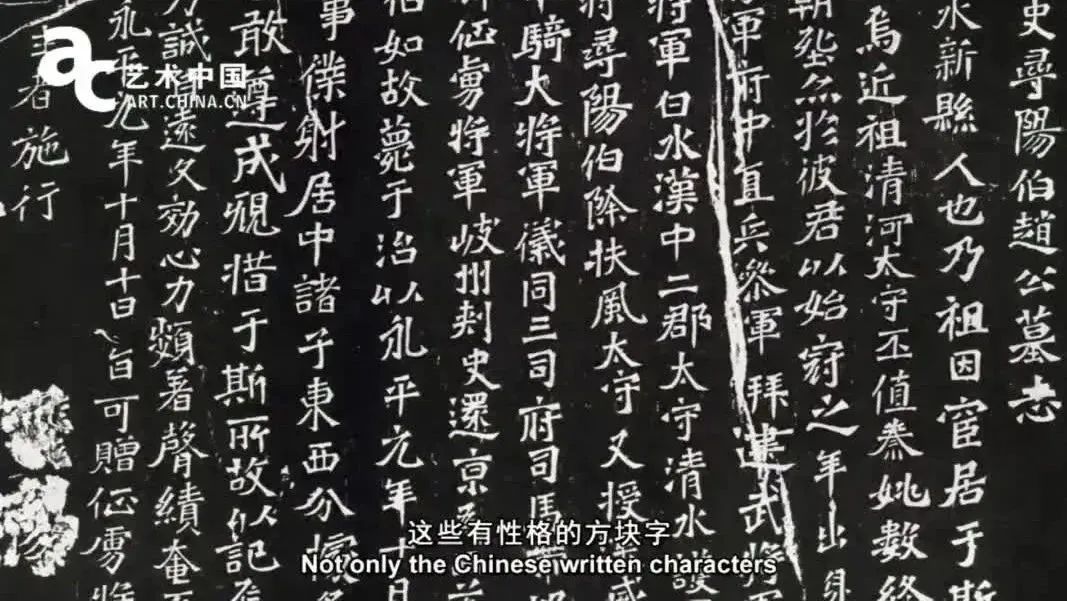 史尋陽伯趙公墓志
水新縣人也乃祖因宦居于斯
焉近祖清河太守丕值秦姚數終
朝歘然於彼君以始冠之年出身
軍府中直兵參軍拜建武將軍
將軍白水漢中二郡太守清水護
尋陽伯除扶風太守又授
騎大將軍儀同三司府司馬
征虜將軍岐州刾史還京
如故薨于治以永平元年十
事僕射居中諸子東西分
敢遵成規惜于斯所故以記
誠遠文効心力頗著聲績奄
永平元年十月十日旨可贈征虜將
者施行
艺术中国
ART.CHINA.CN
这些有性格的方块字
Not only the Chinese written characters